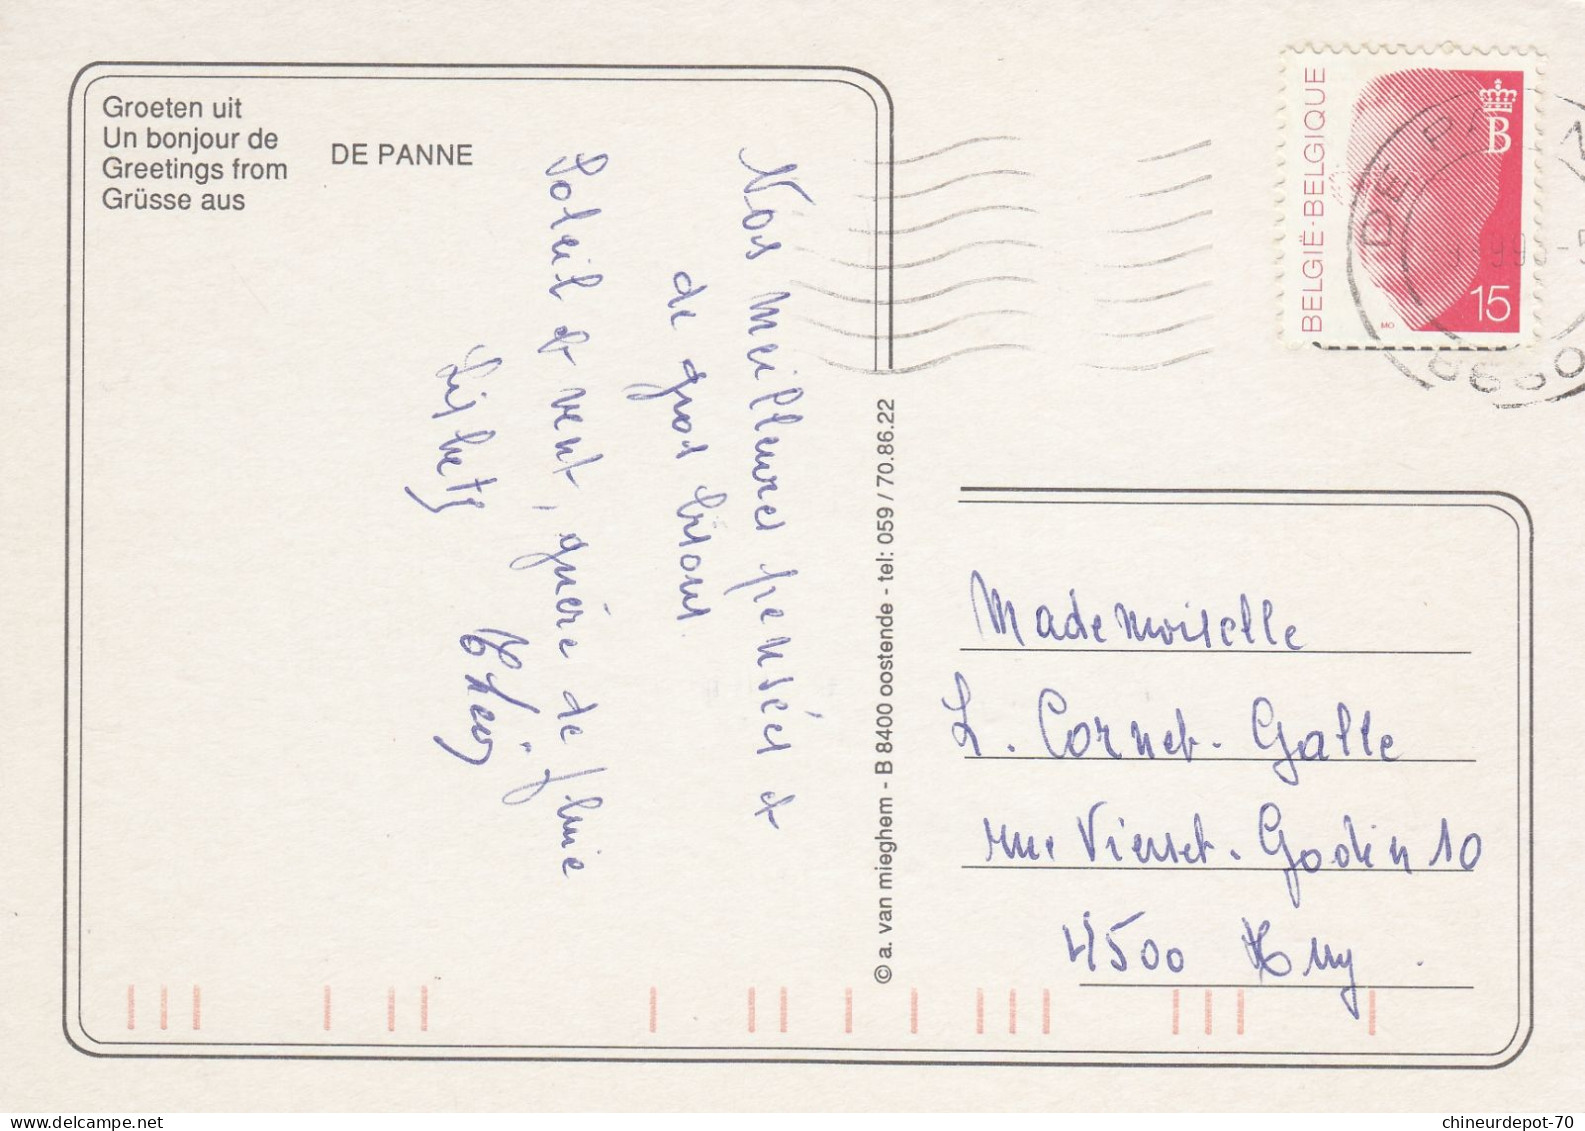 Groeten uit
Un bonjour de
Greetings from
Grüsse aus
DE PANNE
Nos meilleures pensées et
de gros bisous.
Soleil et vent, guère de pluie
Lisbeth
© a. van mieghem - B 8400 oostende - tel: 059 / 70.86.22
BELGIË·BELGIQUE
B
15
MO
DE PA
Mademoiselle
L. Cornet-Galle
rue Vierset-Godin 10
4500 Huy.
chineurdepot-70